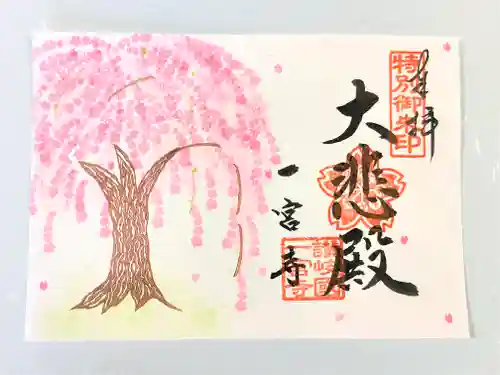 特別御朱印
奉拝
大悲殿
一宮寺
讃岐國
一宮寺